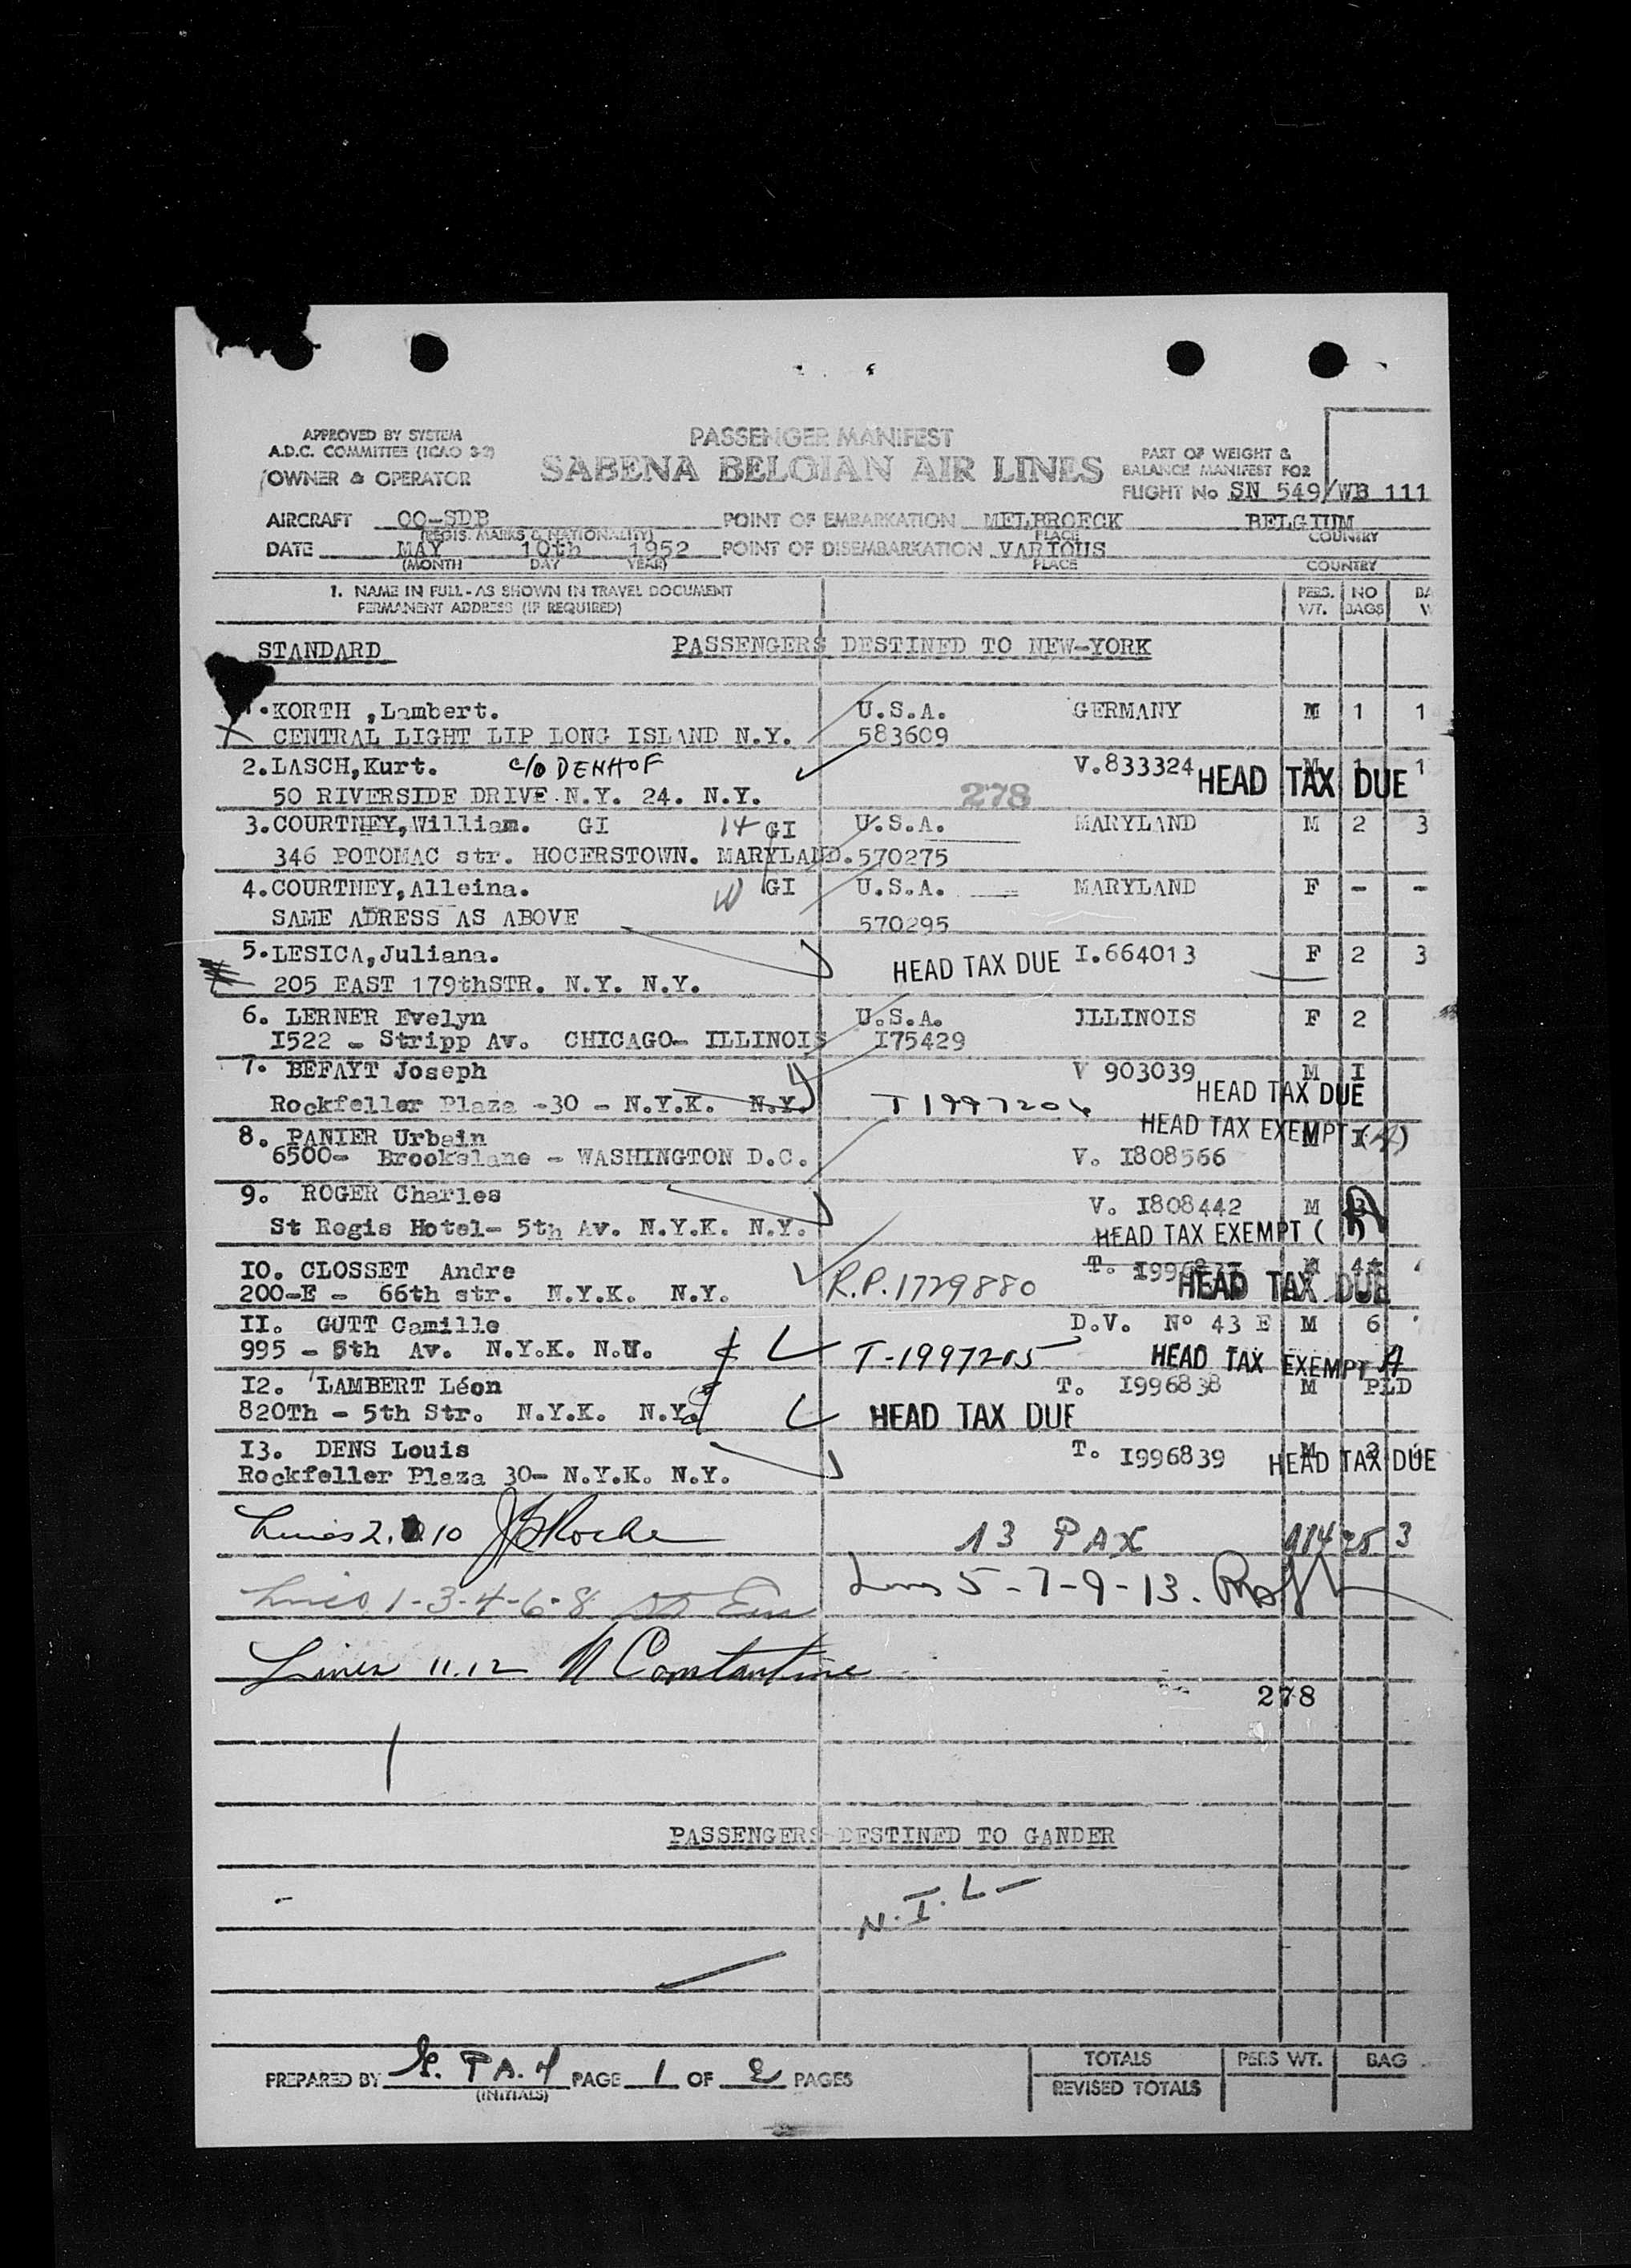 APPROVED BY SYSTEM
A.D.C. COMMITTEE (ICAO 3-2)
OWNER & OPERATOR
PASSENGER MANIFEST
SABENA BELGIAN AIR LINES
PART OF WEIGHT &
BALANCE MANIFEST FOR
FLIGHT No SN 549/WB 111
AIRCRAFT OO-SDB POINT OF EMBARKATION MELBROECK BELGIUM
(REGIS. MARKS & NATIONALITY) PLACE COUNTRY
DATE MAY 10th 1952 POINT OF DISEMBARKATION VARIOUS
(MONTH DAY YEAR) PLACE COUNTRY
1. NAME IN FULL - AS SHOWN IN TRAVEL DOCUMENT PERS. NO BA
PERMANENT ADDRESS (IF REQUIRED) WT. BAGS W
STANDARD PASSENGERS DESTINED TO NEW-YORK
1.KORTH ,Lambert. U.S.A. GERMANY M 1 1
CENTRAL LIGHT LIP LONG ISLAND N.Y. 583609
2.LASCH,Kurt. c/o DENHOF V.833324 M 1 1
HEAD TAX DUE
50 RIVERSIDE DRIVE.N.Y. 24. N.Y. 278
3.COURTNEY,William. GI 14 GI U.S.A. MARYLAND M 2 3
346 POTOMAC str. HOCERSTOWN. MARYLAND.570275
4.COURTNEY,Alleina. W GI U.S.A. MARYLAND F - -
SAME ADRESS AS ABOVE 570295
5.LESICA,Juliana. HEAD TAX DUE I.664013 F 2 3
205 EAST 179thSTR. N.Y. N.Y.
6. LERNER Evelyn U.S.A. ILLINOIS F 2
I522 - Stripp Av. CHICAGO- ILLINOIS I75429
7. BEFAYT Joseph V 903039 M I
HEAD TAX DUE
Rockfeller Plaza -30 - N.Y.K. N.Y. T1997206
HEAD TAX EXEMPT (A)
8. PANIER Urbain
6500- Brookslane - WASHINGTON D.C. V. I808566
9. ROGER Charles V. I808442 M 3
St Regis Hotel- 5th Av. N.Y.K. N.Y. HEAD TAX EXEMPT ( A
IO. CLOSSET Andre T. M
200-E - 66th str. N.Y.K. N.Y. R.P.1729880 HEAD TAX DUE
II. GUTT Camille D.V. Nº 43 E M 6
995 - 5th Av. N.Y.K. N.Y. T-1997205 HEAD TAX EXEMPT A
I2. LAMBERT Léon T. I996838 M PLD
820Th - 5th Str. N.Y.K. N.Y. HEAD TAX DUE
I3. DENS Louis T. I996839 M 2 HEAD TAX DUE
Rockfeller Plaza 30- N.Y.K. N.Y.
Lines 2. 10 13 PAX 3
Lines 1-3-4-6-8 Lines 5-7-9-13.
Lines 11.12 N Constantine
278
PASSENGERS DESTINED TO GANDER
N.I.L-
PREPARED BY PAGE 1 OF 2 PAGES
(INITIALS)
TOTALS PERS WT. BAG
REVISED TOTALS